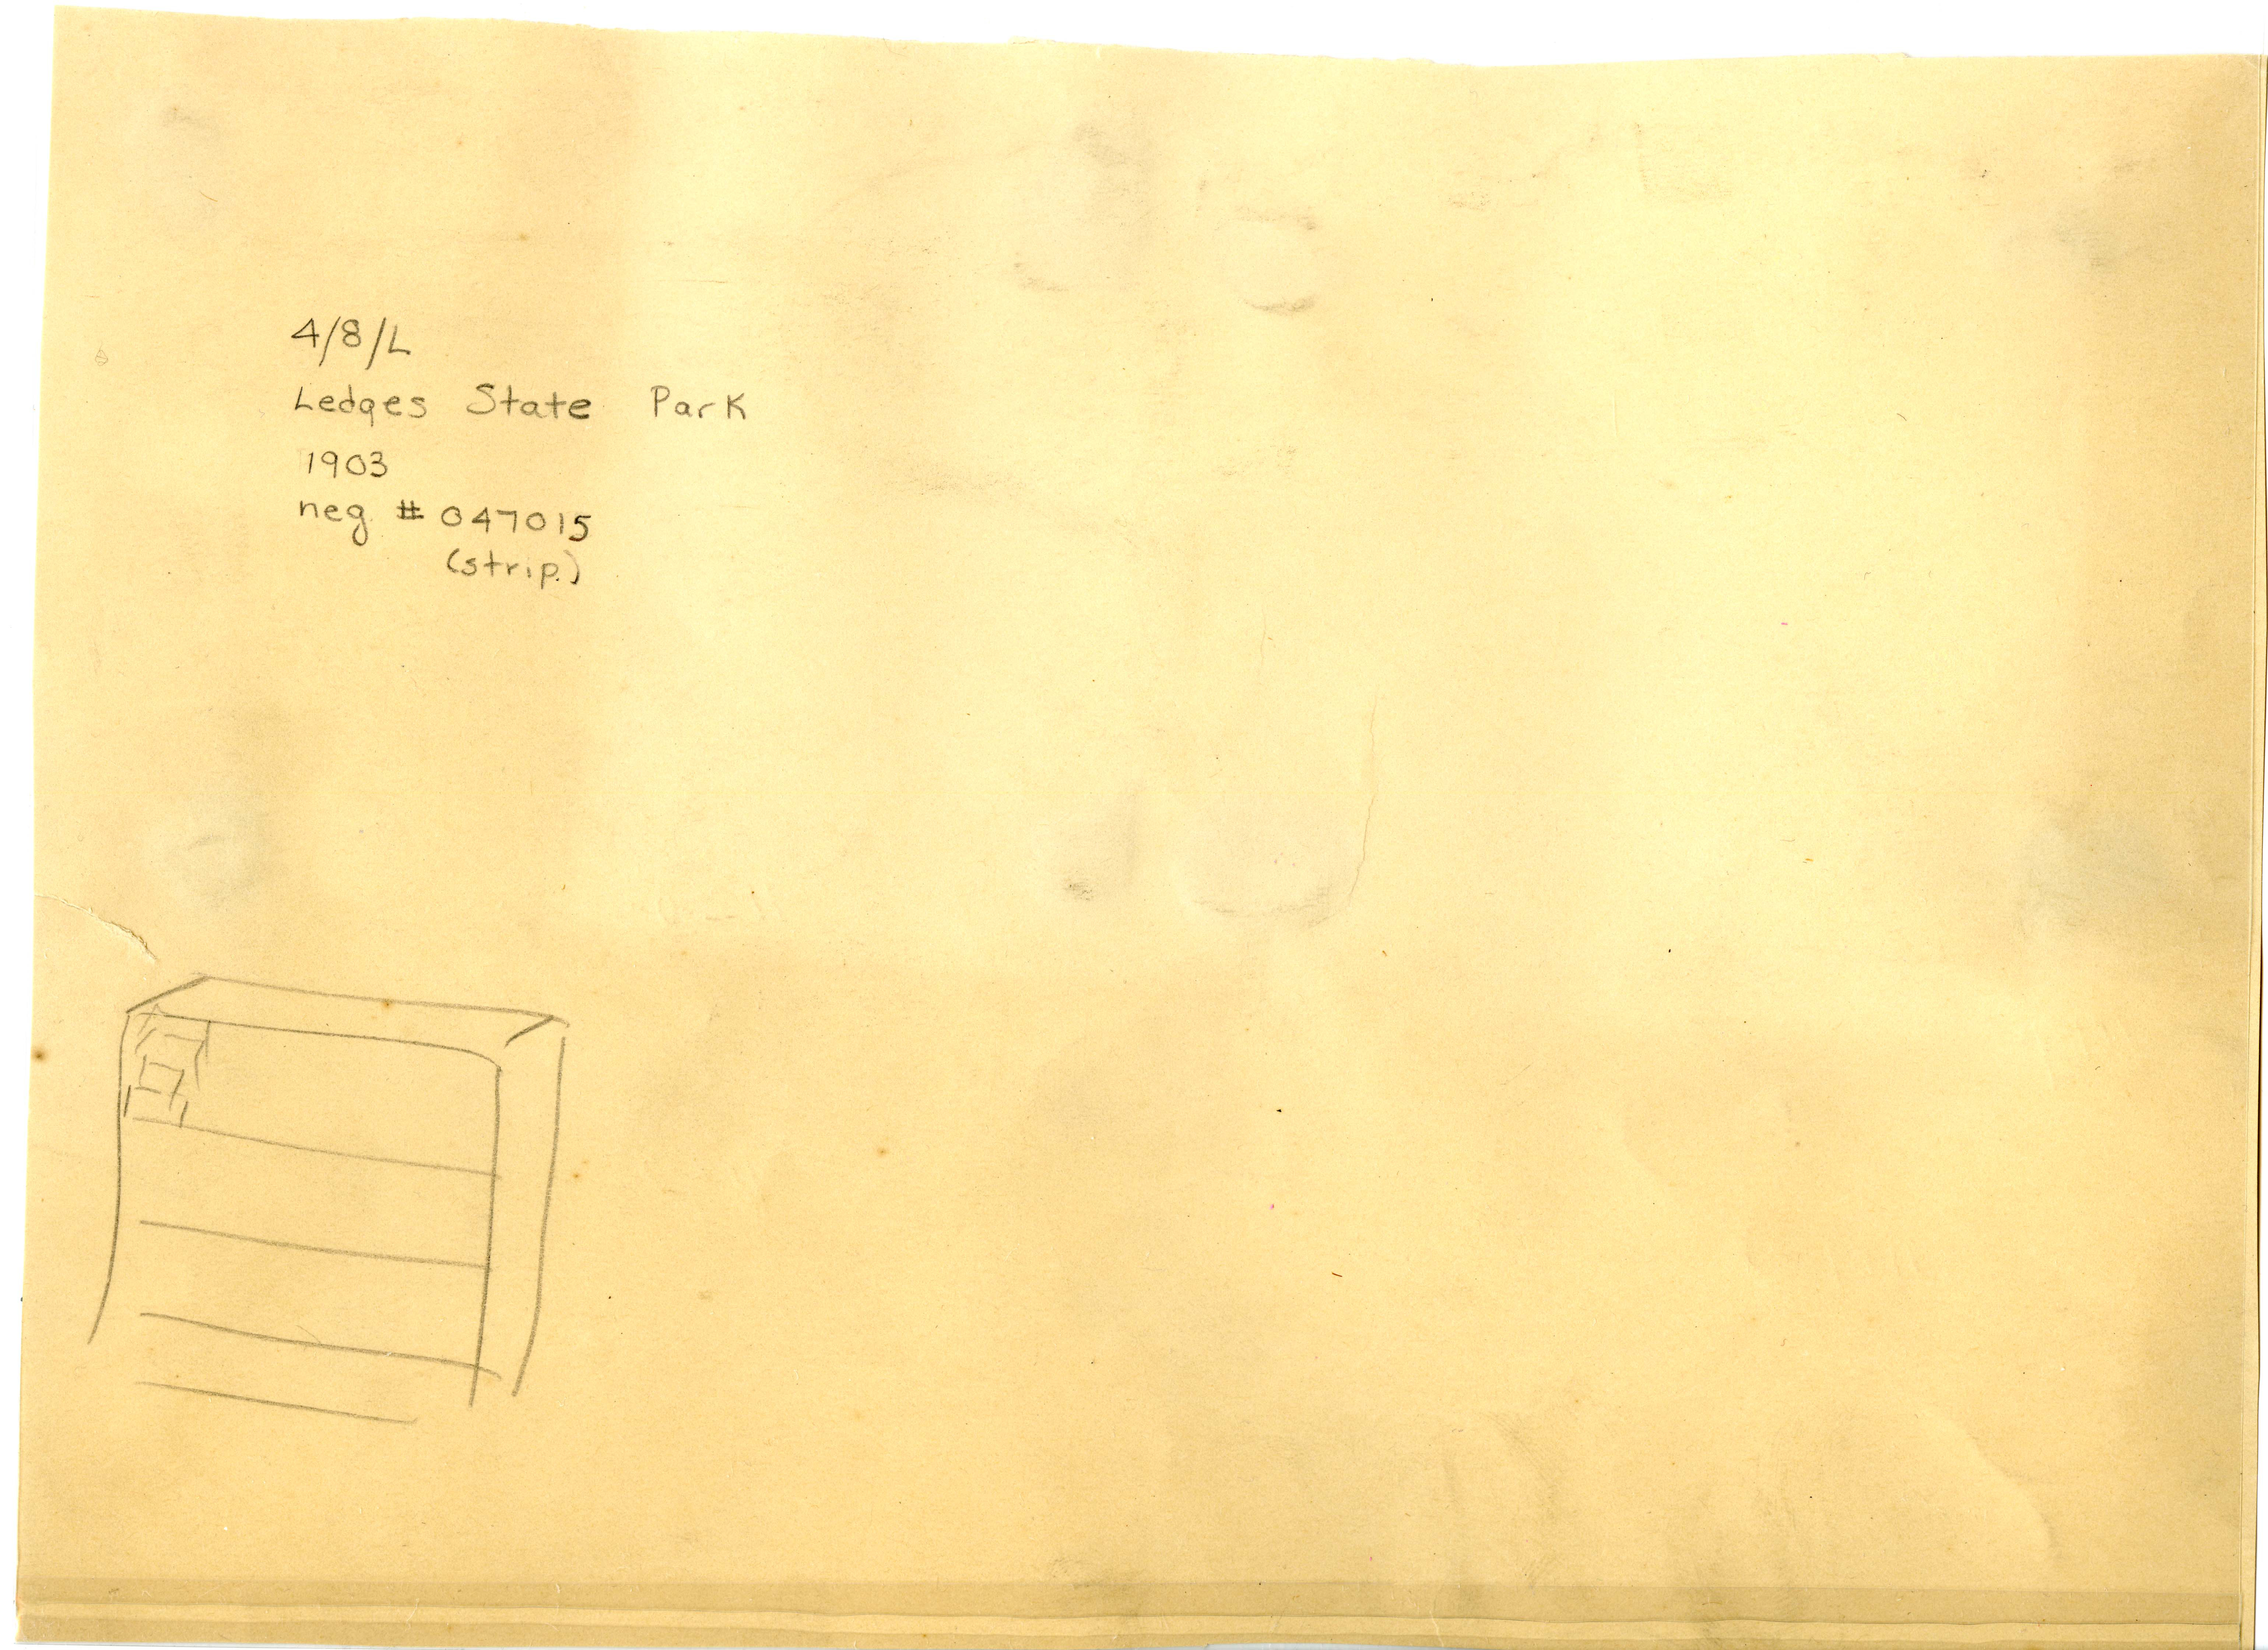 4/8/L
Ledges State Park
1903
neg # 047015
(strip)